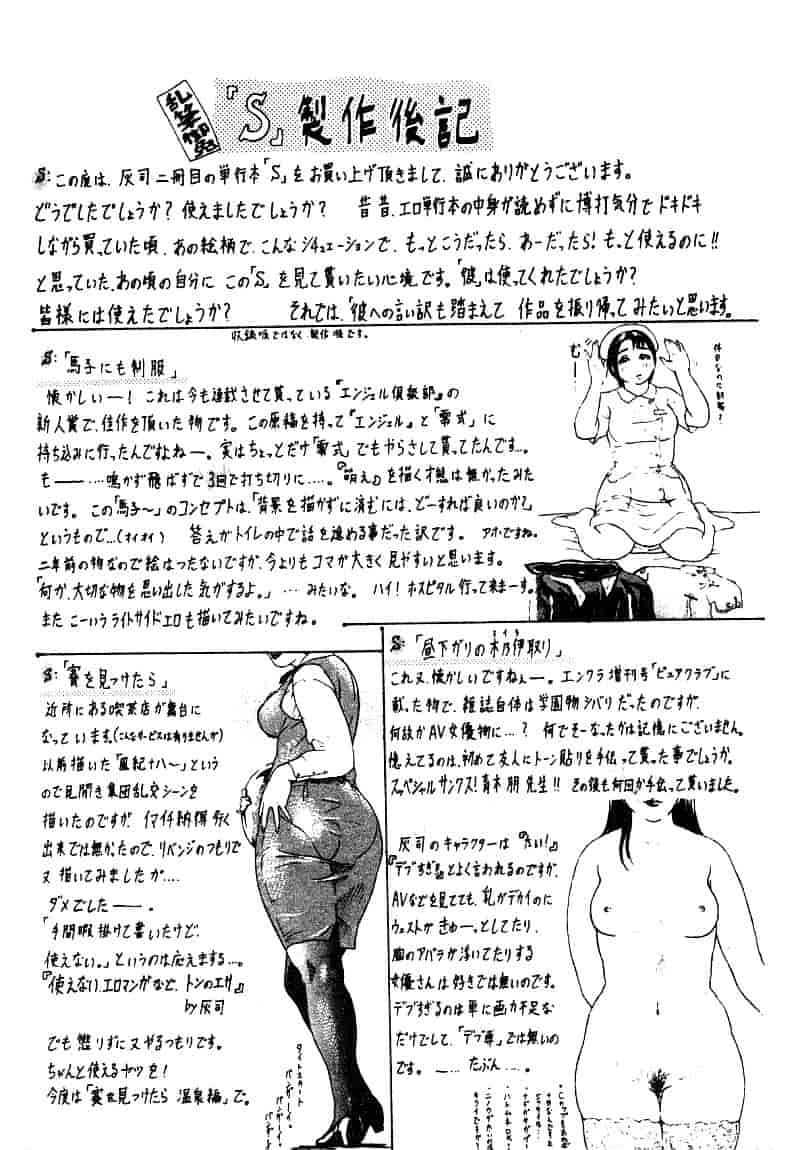 乱筆御免
『S』製作後記
S:この度は、灰司二冊目の単行本「S」をお買い上げ頂きまして、誠にありがとうございます。
どうでしたでしょうか?使えましたでしょうか? 昔昔、エロ単行本の中身が読めずに博打気分でドキドキ
しながら買っていた頃、あの絵柄で、こんなシチュエーションで、もっとこうだったら、あーだったら!もっと使えるのに!!
と思っていた、あの頃の自分にこの「S」を見て貰いたい心境です。「彼」は使ってくれたでしょうか?
皆様には使えたでしょうか? それでは、「彼への言い訳も踏まえて 作品を振り帰ってみたいと思います。
収録順ではなく、製作順です。
S:「馬子にも制服」
懐かしいー!これは今も連載させて貰っている『エンジェル倶楽部』の
新人賞で、佳作を頂いた物です。この原稿を持って『エンジェル』と「零式」に
持ち込みに行ったんですよねー。実はちょっとだけ「零式」でもやらさして貰ってたんです…。
もー……鳴かず飛ばずで3回で打ち切りに……。『萌え』を描く才能は無かったみた
いです。この「馬子〜」のコンセプトは、「背景を描かずに済むには、どーすれば良いのか?」
というもので…(オイオイ) 答えがトイレの中で話を進める事だった訳です。アホですね。
二年前の物なので絵はつたないですが、今よりもコマが大きく見やすいと思います。
「何か、大切な物を思い出した気がするよ。」…みたいな。ハイ!ホスピタル行って来まーす。
また こーいうライトサイドエロも描いてみたいですね。
むー
S:「賽を見つけたら」
近所にある喫茶店が舞台に
なっています。(こんなサービスは有りませんが)
以前描いた「風紀十八〜」という
ので見開き集団乱交シーンを
描いたのですが、イマイチ納得行く
出来では無かったので、リベンジのつもりで
又描いてみましたが…。
ダメでしたー。
「手間暇掛けて書いたけど、
使えない。」というのは応えまする…。
『使えない、エロマンガなど、トンのエサ』
by灰司
でも懲りずに又やるつもりです。
ちゃんと使えるヤツを!
今度は「賽を見つけたら 温泉編」で。
タイトスカート
バンザーイ。
バンザーイ。
S:「昼下がりの木乃伊取り」
これ又、懐かしいですねぇー。エンクラ増刊号「ピュアクラブ」に
載った物で、雑誌自体は学園物シバリだったのですが、
何故かAV女優物に…?何でそーなったかは記憶にございません。
憶えてるのは、初めて友人にトーン貼りを手伝って貰った事でしょうか。
スペシャルサンクス!青木朋先生!!その後も何回か手伝って貰いました。
灰司のキャラクターは
『デブすぎ』とよく言われるのですが、
AVなどを見てても、乳がデカイのに
ウェストがきゅーっとしてたり、
胸のアバラが浮いてたりする
女優さんは好きでは無いのです。
デブすぎるのは単に画力不足な
だけでして、「デブ専」では無いの
です。ー…たぶん…。